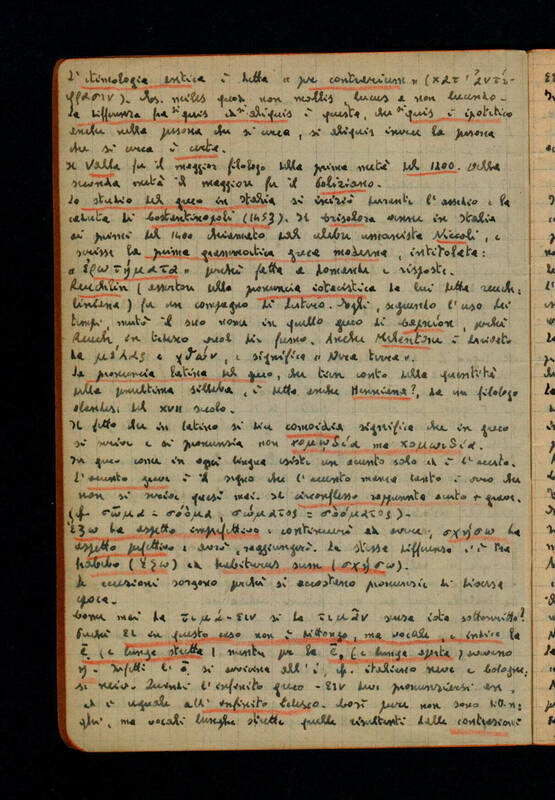 L'etimologia antica è detta « per contrarium » (κατ' ἀντί-
φρασιν). Es. miles quod non mollis, lucus a non lucendo.
La differenza fra si quis ed si aliquis è questa, che si quis è ipotetico
anche nella persona che si cerca, si aliquis invece la persona
che si cerca è certa.
Il Valla fu il maggior filologo della prima metà del 1400. Della
seconda metà il maggiore fu il Poliziano.
Lo studio del greco in Italia si iniziò durante l'assedio e la
caduta di Costantinopoli (1453). Il Crisolora venne in Italia
ai primi del 1400 chiamato dal celebre umanista Niccoli, e
scrisse la prima grammatica greca moderna, intitolata:
« ἐρωτήματα » perché fatta a domande e risposte.
Reuchlin (assertore della pronuncia iotacistica da lui detta reuch-
liniana) fu un compagno di Lutero. Egli, seguendo l'uso dei
tempi, mutò il suo nome in quello greco di καπνίον, perché
Rauch in tedesco vuol dir fumo. Anche Melantone è derivato
da μέλας e χθών, e significa « Nera terra ».
La pronuncia latina del greco, che tien conto della quantità
della penultima sillaba, è detta anche Henniniana?, da un filologo
olandese del XVII secolo.
Il fatto che in latino si dica comoidia significa che in greco
si scrive e si pronunzia non κομῳδία ma κομωιδία.
In greco come in ogni lingua esiste un accento solo ed è l'acuto.
L'accento grave è il segno che l'accento manca tanto è vero che
non si scrive quasi mai. Il circonflesso rappresenta acuto + grave.
(cf. σῶμα = σόομα, σώματος = σοόματος) -
Ἕξω ha aspetto imperfettivo: continuerò ad avere, σχήσω ha
aspetto perfettivo: avrò, raggiungerò. La stessa differenza c'è tra
habebo (ἕξω) ed habiturus sum (σχήσω).
Le eccezioni sorgono perché si accostano pronuncie di diversa
epoca.
Come mai da τιμά-ειν si ha τιμᾶν senza iota sottoscritto?
Perché ει in questo caso non è dittongo, ma vocale, e indica la
ẹ̄ (e lunga stretta) mentre per la ē̜ (e lunga aperta) avevano
η - Infatti l'ẹ̄ si avvicina all'i, cf. italiano neve e bologne-
se neiv. Quindi l'infinito greco -ειν deve pronunziarsi en
ed è uguale all'infinito tedesco. Così pure non sono ditton-
ghi, ma vocali lunghe strette quelle risultanti dalle contrazioni